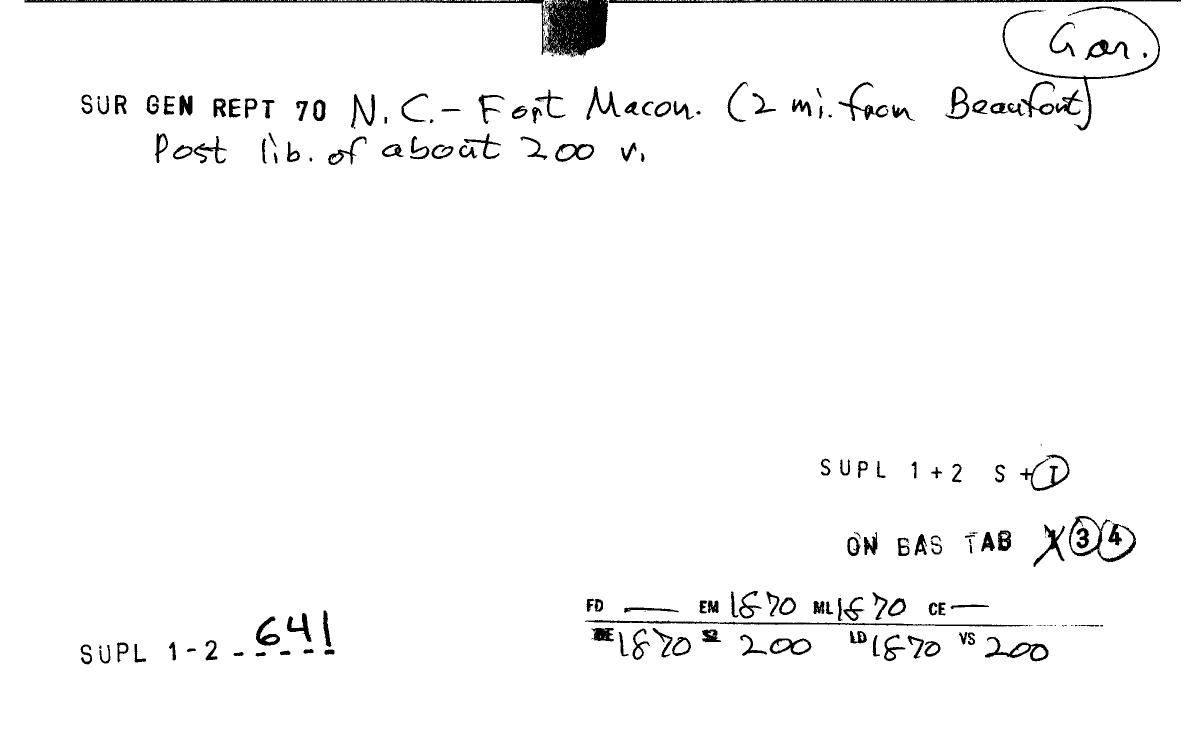 Gar.
SUR GEN REPT 70 N.C.- Fort Macon. (2 mi. from Beaufort)
Post lib. of about 200 v.
SUPL 1+2 S+I
ON BAS TAB X 3 4
FD — EM 1870 ML 1870 CE —
1870 200 LD 1870 VS 200
SUPL 1-2 - 641